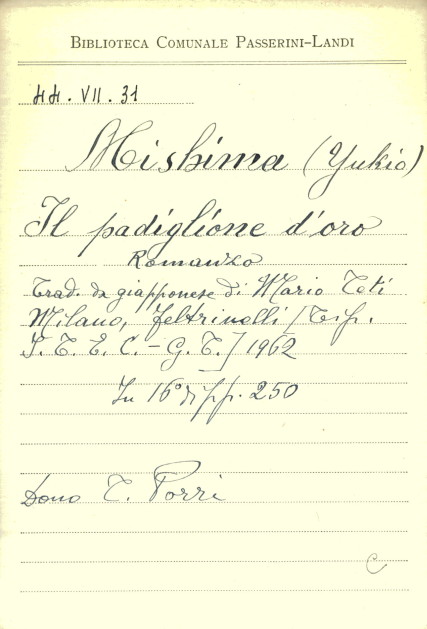 BIBLIOTECA COMUNALE PASSERINI-LANDI
44. VII. 31
Mishima (Yukio)
Il padiglione d'oro
Romanzo
Trad. da giapponese di Mario Teti
Milano, Feltrinelli [Tip.
I. T. E. C. - G. T.] 1962
In 16° di pp. 250
Dono T. Porri
C